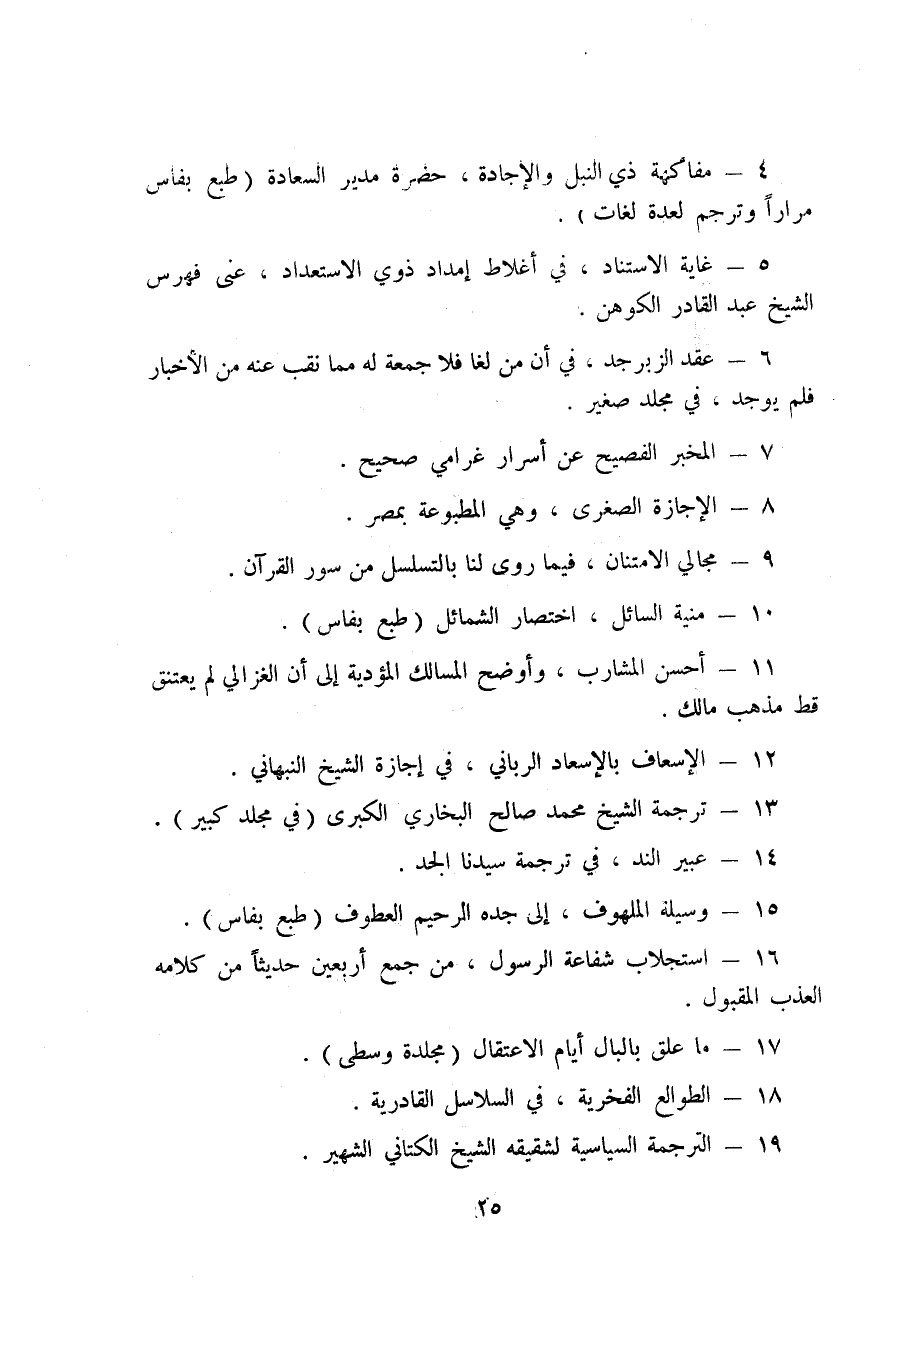 ٤ – مفاكهة ذي النبل والإجادة ، حضرة مدير السعادة ( طبع بفاس
مراراً وترجم لعدة لغات ) .
٥ – غاية الاستناد ، في أغلاط إمداد ذوي الاستعداد ، عنى فهرس
الشيخ عبد القادر الكوهن .
٦ – عقد الزبرجد ، في أن من لغا فلا جمعة له مما نقب عنه من الأخبار
فلم يوجد ، في مجلد صغير .
٧ – المخبر الفصيح عن أسرار غرامي صحيح .
٨ – الإجازة الصغرى ، وهي المطبوعة بمصر .
٩ – مجالي الامتنان ، فيما روى لنا بالتسلسل من سور القرآن .
١٠ – منية السائل ، اختصار الشمائل ( طبع بفاس ) .
١١ – أحسن المشارب ، وأوضح المسالك المؤدية إلى أن الغزالي لم يعتنق
قط مذهب مالك .
١٢ – الإسعاف بالإسعاد الرباني ، في إجازة الشيخ النبهاني .
١٣ – ترجمة الشيخ محمد صالح البخاري الكبرى ( في مجلد كبير ) .
١٤ – عبير الند ، في ترجمة سيدنا الجد .
١٥ – وسيلة الملهوف ، إلى جده الرحيم العطوف ( طبع بفاس ) .
١٦ – استجلاب شفاعة الرسول ، من جمع أربعين حديثاً من كلامه
العذب المقبول .
١٧ – ما علق بالبال أيام الاعتقال ( مجلدة وسطى ) .
١٨ – الطوالع الفخرية ، في السلاسل القادرية .
١٩ – الترجمة السياسية لشقيقه الشيخ الكتاني الشهير .
٢٥